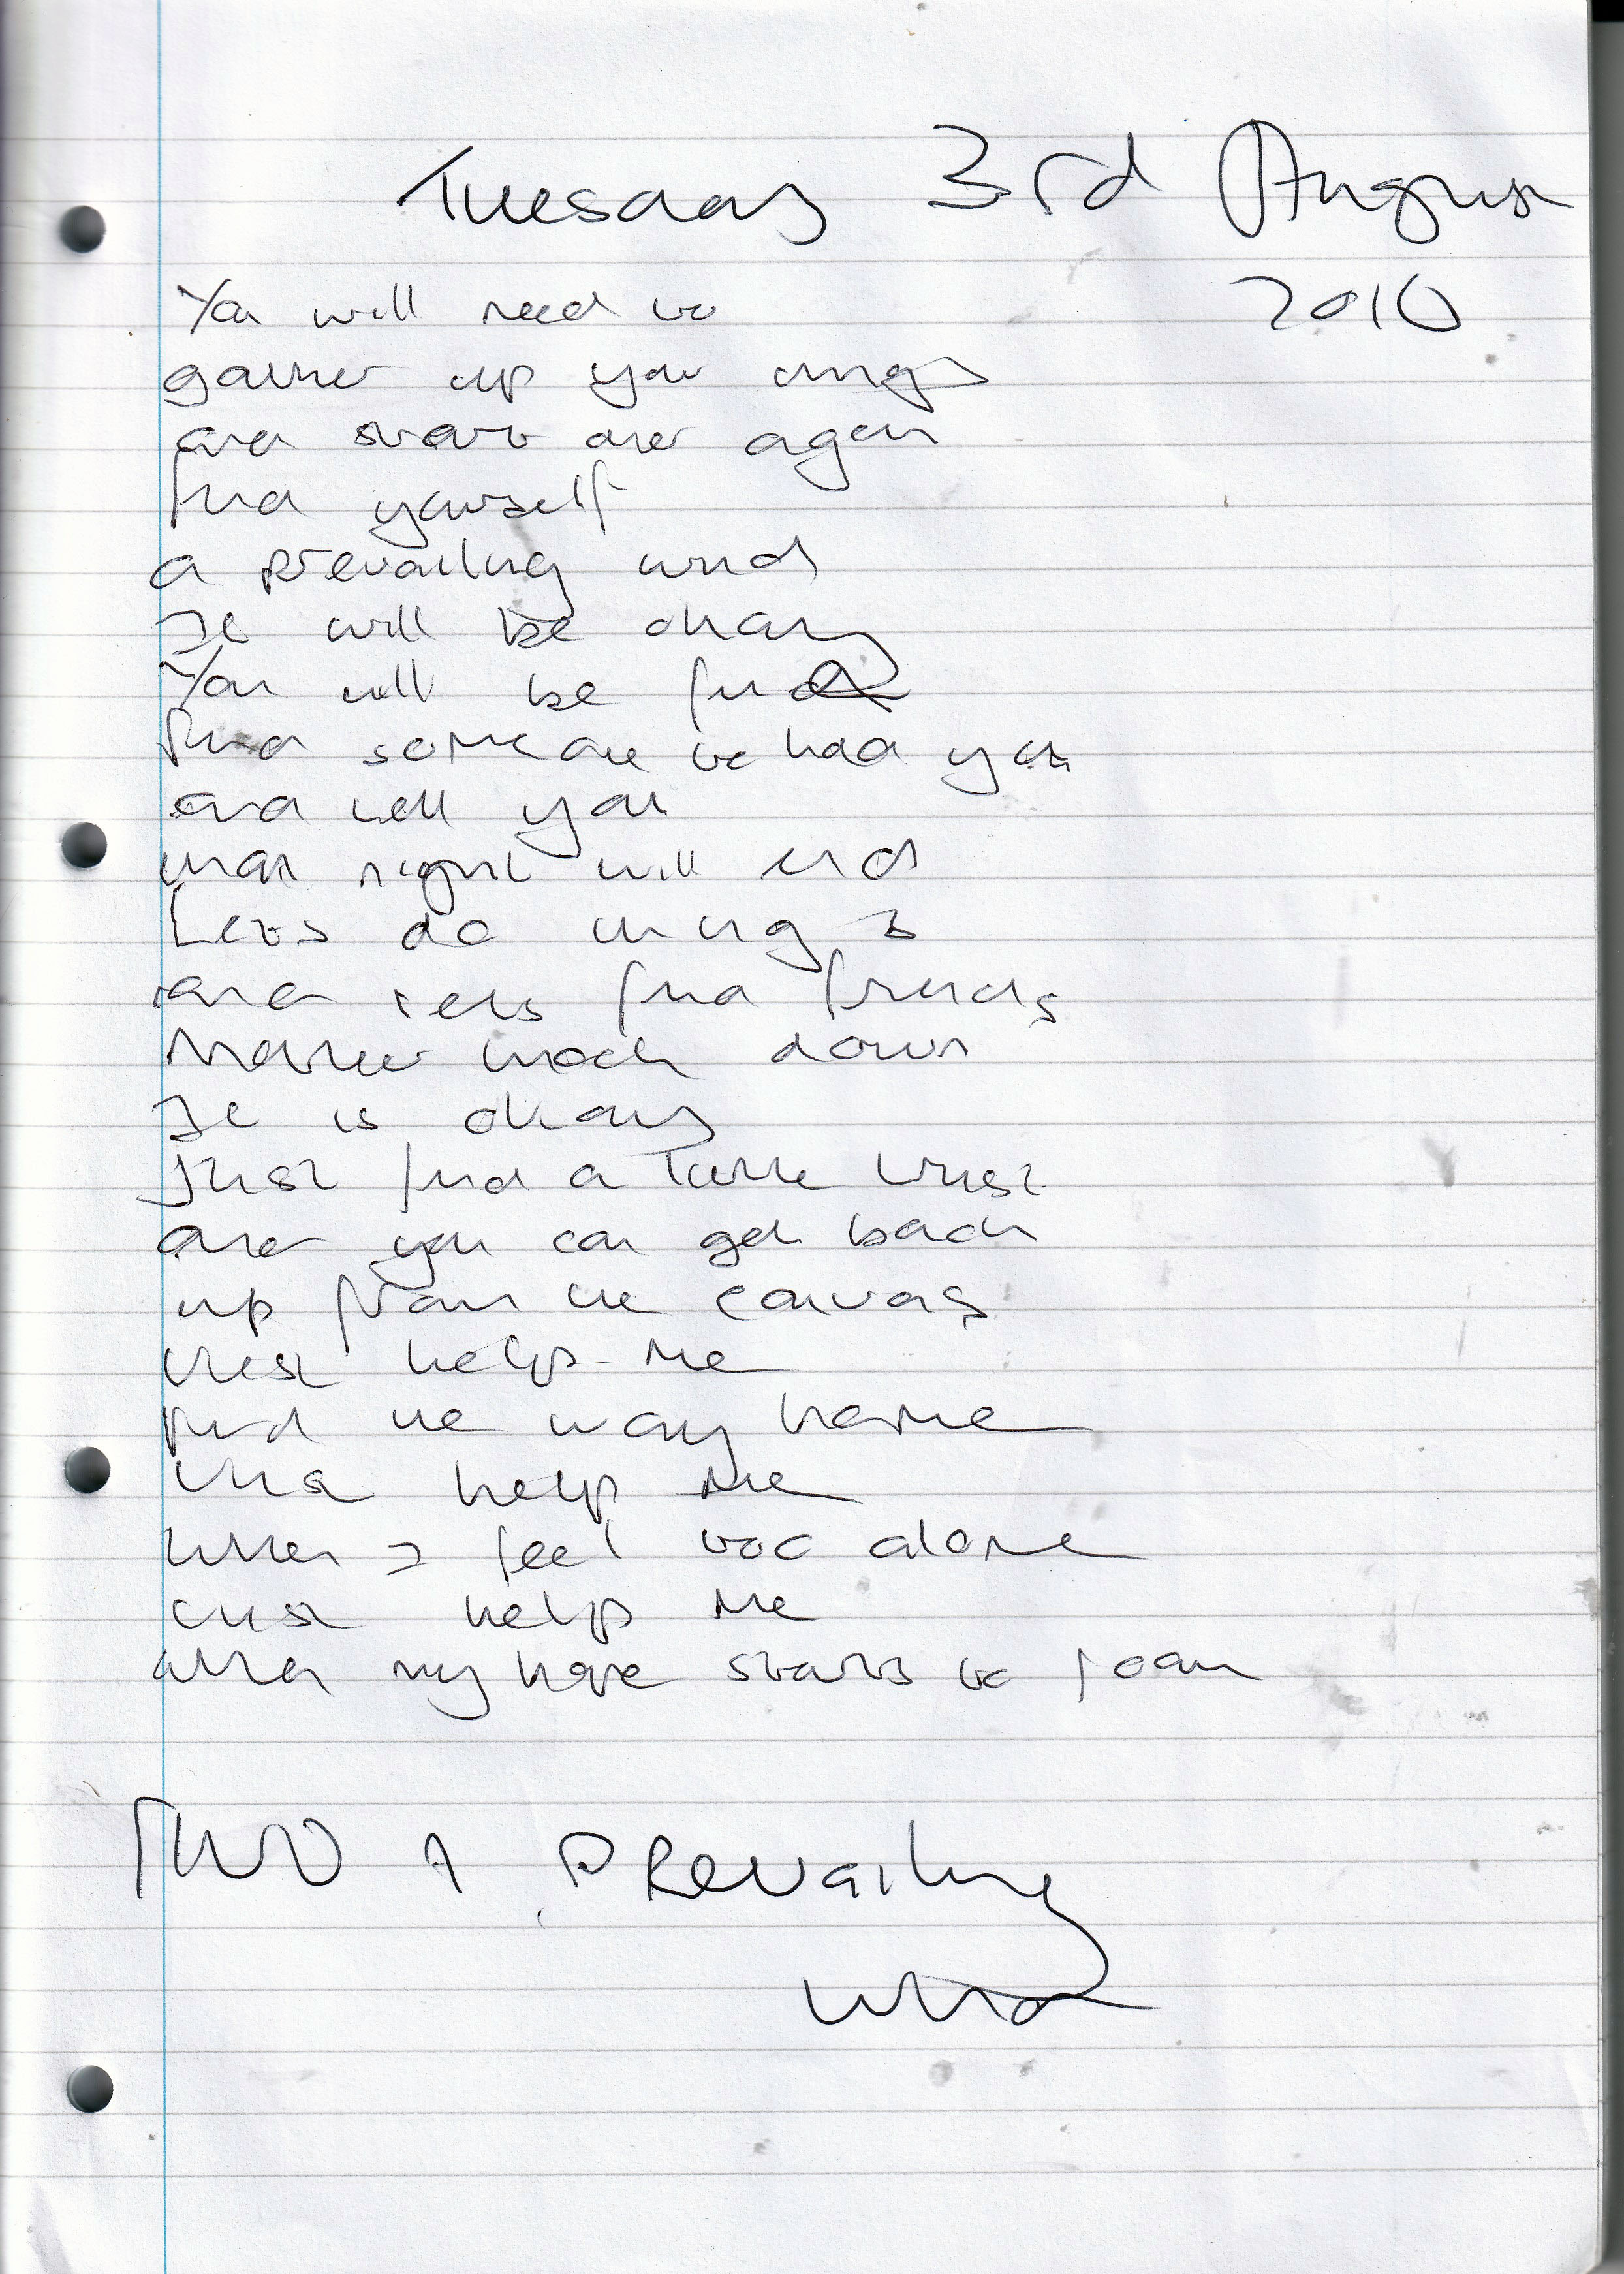 Tuesday 3rd August
2010
You will need to
gather up your things
and start over again
find yourself
a prevailing wind
It will be okay
You will be fine
find someone to hold you
and tell you
that night will end
Lets do things
and lets find friends
knock down
It is okay
Just find a little trust
and you can get back
up from the canvas
trust help me
find the way home
trust help me
When I feel too alone
trust help me
when my hope starts to roam
FIND A PREvailing
wind